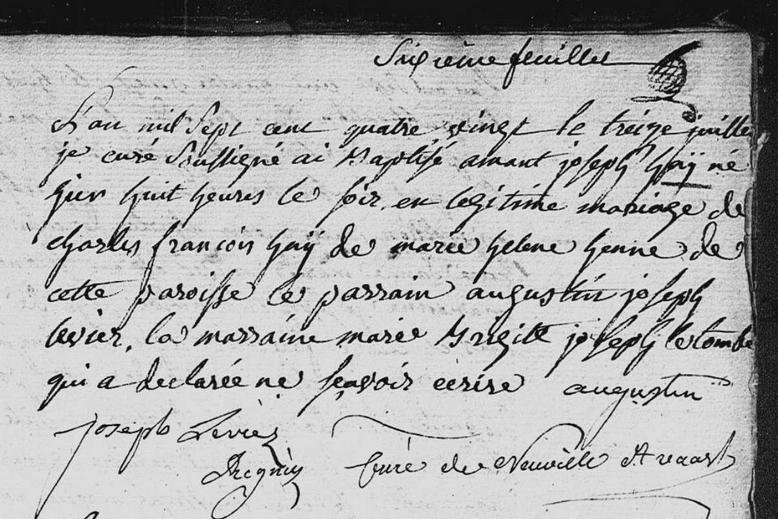 Sixieme feuillet
L'an mil sept cent quatre vingt le treize juillet
je curé soussigné ai Baptisé amant joseph haÿ né
hier huit heures le soir, en legitime mariage de
charles francois haÿ de marie helene henne de
cette paroisse le parrain augustin joseph
levier, la marraine marie Brigitte joseph letombe
qui a declarée ne sçavoir ecrire augustin
joseph Levier
Curé de Neuville St vaast